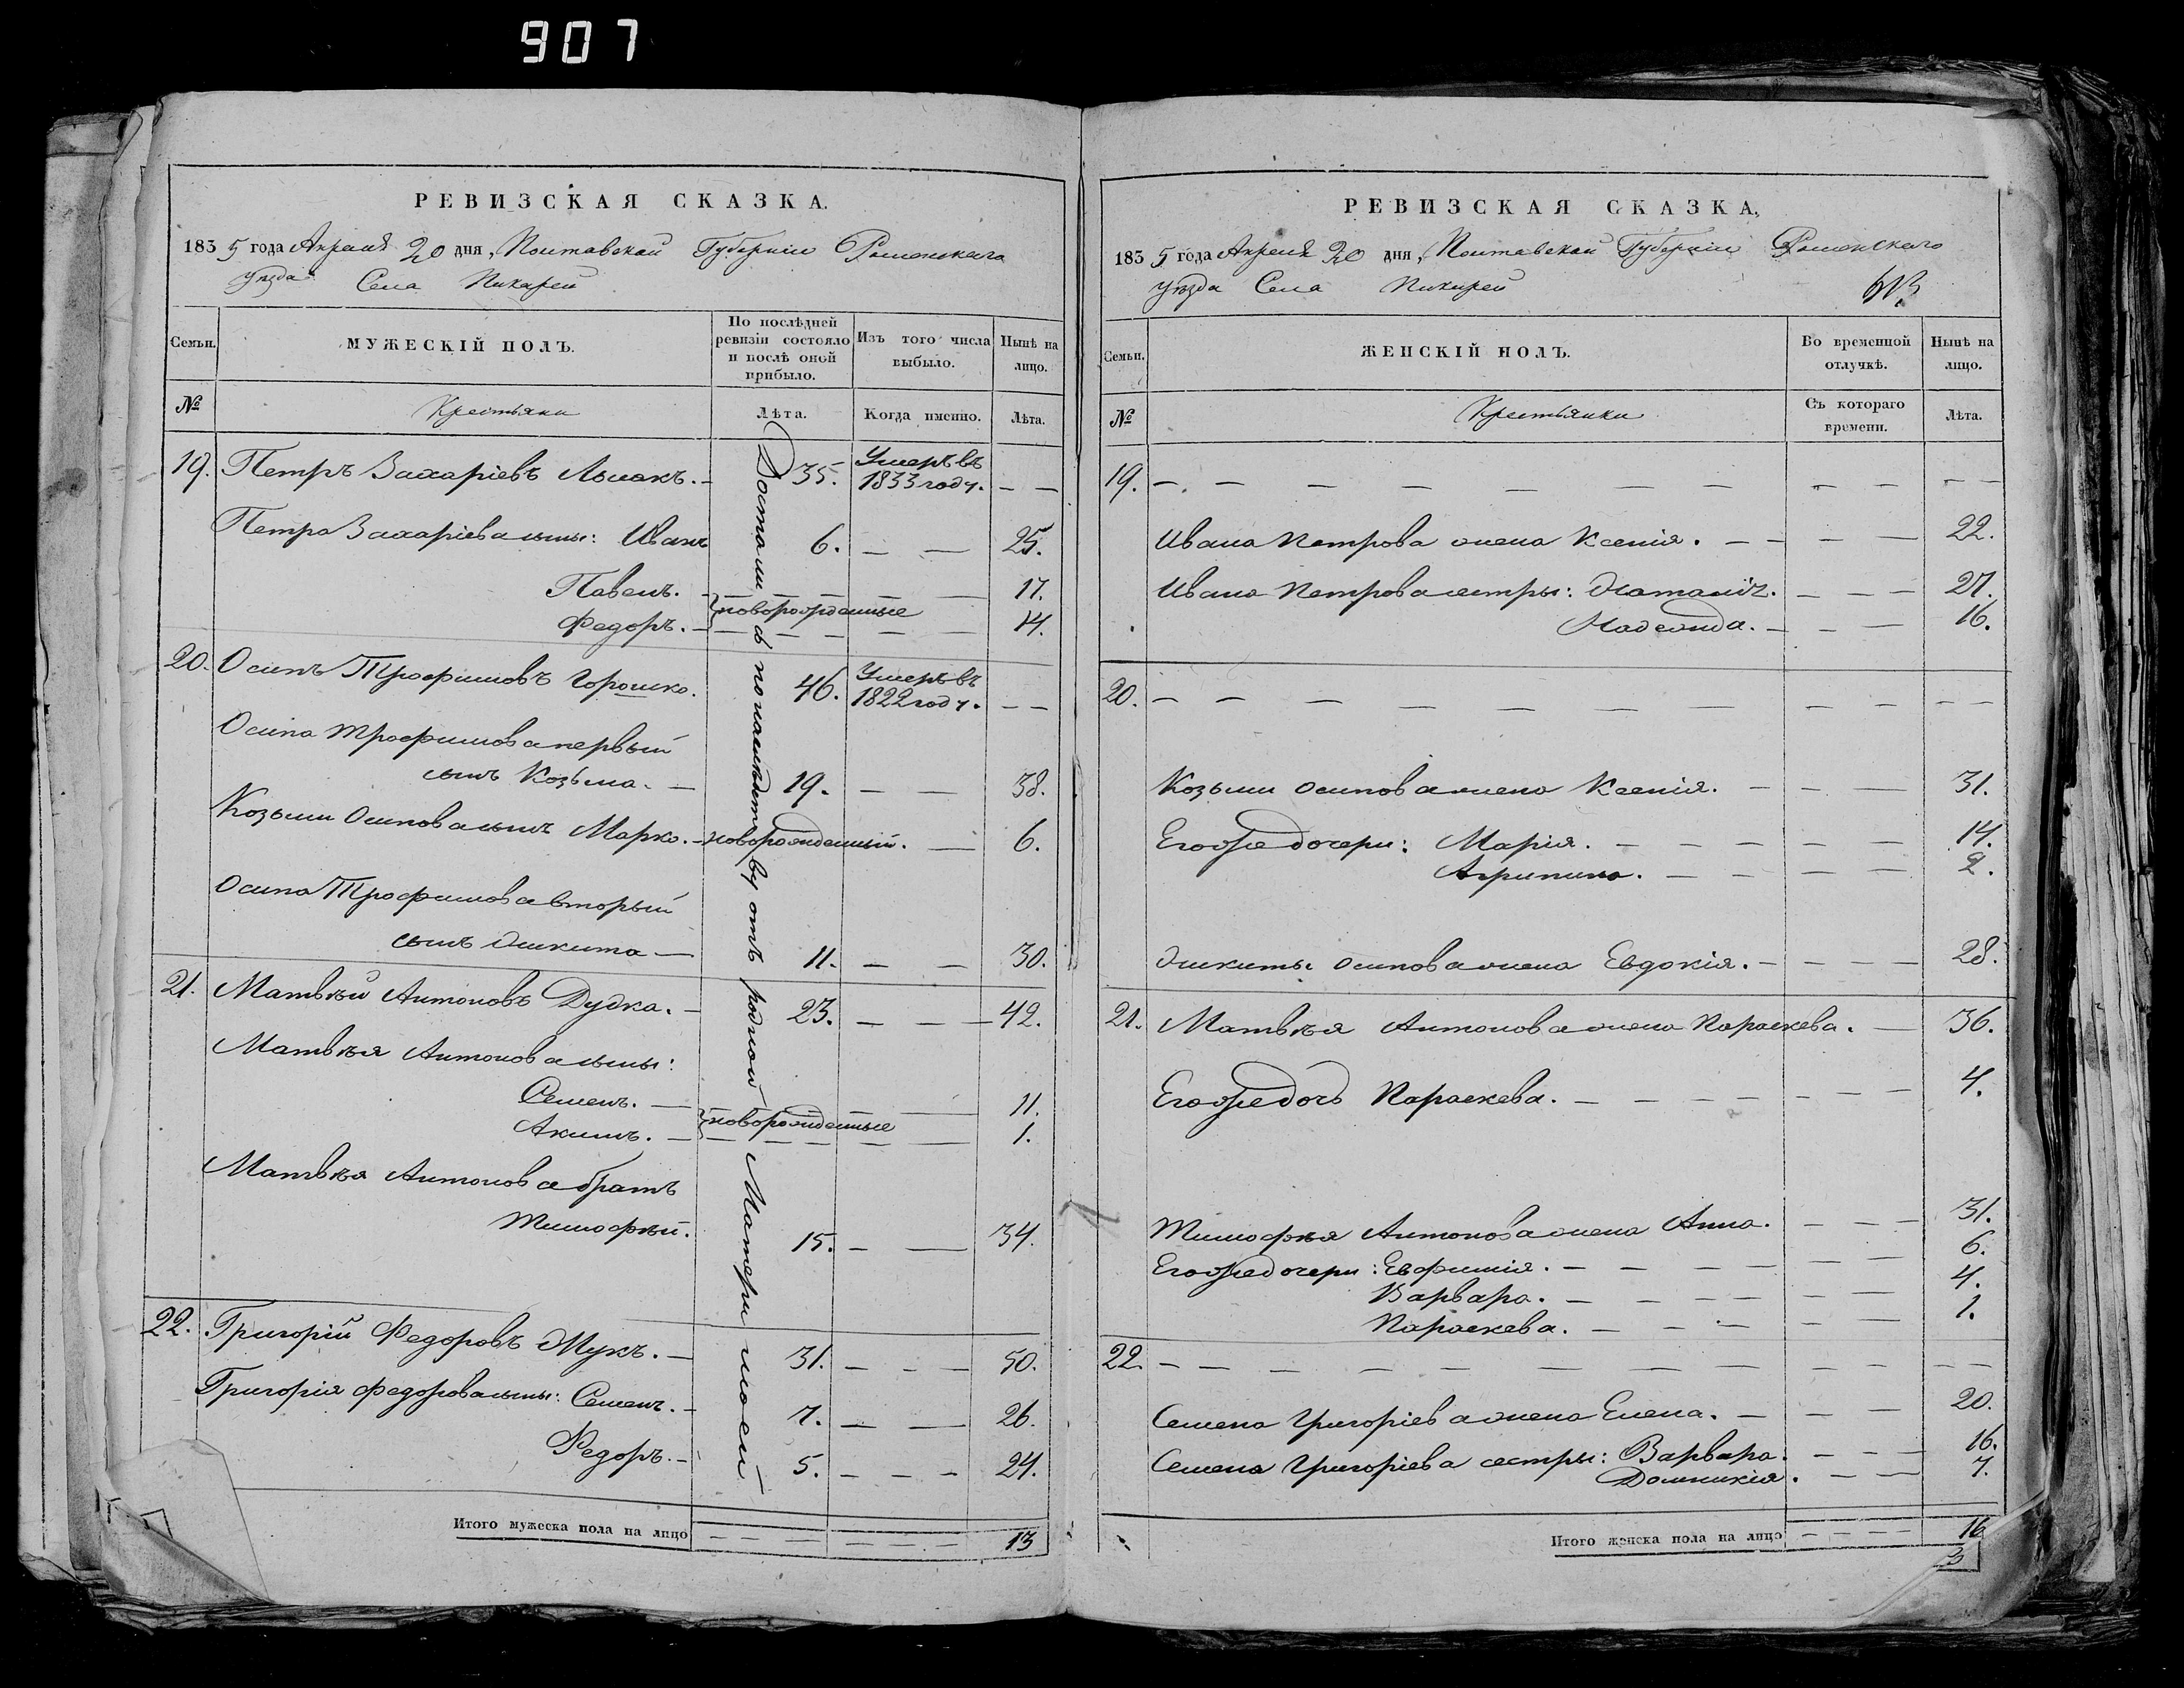 907
РЕВИЗСКАЯ СКАЗКА.
1835 года Апреля 20 дня, Полтавской Губернии Роменского
уезда Села Пикарей
Семьи.
МУЖЕСКІЙ ПОЛЪ.
По послѣдней ревизіи состояло и послѣ оной прибыло.
Изъ того числа выбыло.
Нынѣ на лицо.
№
Крестьяни
Лѣта.
Когда именно.
Лѣта.
Достались по наследству отъ родной Матери моей
19. Петръ Захаріевъ 35. Умеръ въ 1833 году. — —
Петра Захаріева сыны: Иванъ 6. — — 25.
Павелъ. — — — 17.
новорожденные
Федоръ. — — — 14.
20. Осипъ Трофимовъ Горошко. 46. Умеръ въ 1822 году. — —
Осипа Трофимова первый
сынъ Козьма. — 19. — — 38.
Козьмы Осипова сынъ Марко. — новорожденный. — 6.
Осипа Трофимова вторый
сынъ Никита — 11. — — 30.
21. Матвѣй Антоновъ Дудка. — 23. — — 42.
Матвѣя Антонова сыны:
Семенъ. — — — 11.
новорожденные
Акимъ. — — — 1.
Матвѣя Антонова братъ
Тимофѣй. 15. — — 34.
22. Григорій Федоровъ Жукъ. — 31. — — 50.
Григорія Федорова сыны: Семенъ. — 7. — — 26.
Федоръ. — 5. — — — 24.
Итого мужеска пола на лицо — — — — — 13
РЕВИЗСКАЯ СКАЗКА,
1835 года Апреля 20 дня, Полтавской Губерніи Роменского
уѣзда Села Пикарей
Семьи.
ЖЕНСКІЙ ПОЛЪ.
Во временной отлучкѣ.
Нынѣ на лицо.
№
Крестьянки
Съ котораго времени.
Лѣта.
19. — — — — — — — — — —
Ивана Петрова жена Ксенія. — — — — 22.
Ивана Петрова сестры: Наталія. — — — 27.
Надежда. — — — 16.
20. — — — — — — — — — —
Козьмы Осипова жена Ксенія. — — — 31.
Его же дочери: Марія. — — — — — 14.
Агрипина. — — — — 2.
Никиты Осипова жена Евдокія. — — — — 28.
21. Матвѣя Антонова жена Параскева. — 36.
Его же дочь Параскева. — — — — — — 4.
Тимофѣя Антонова жена Анна. — — — 31.
Его же дочери: Евфимія. — — — — — 6.
Варвара. — — — — — 4.
Параскева. — — — — — 1.
22. — — — — — — — — — —
Семена Григоріева жена Елена. — — — 20.
Семена Григоріева сестры: Варвара. — — — 16.
Домникія. — — 7.
Итого женска пола на лицо — — — — 16
3